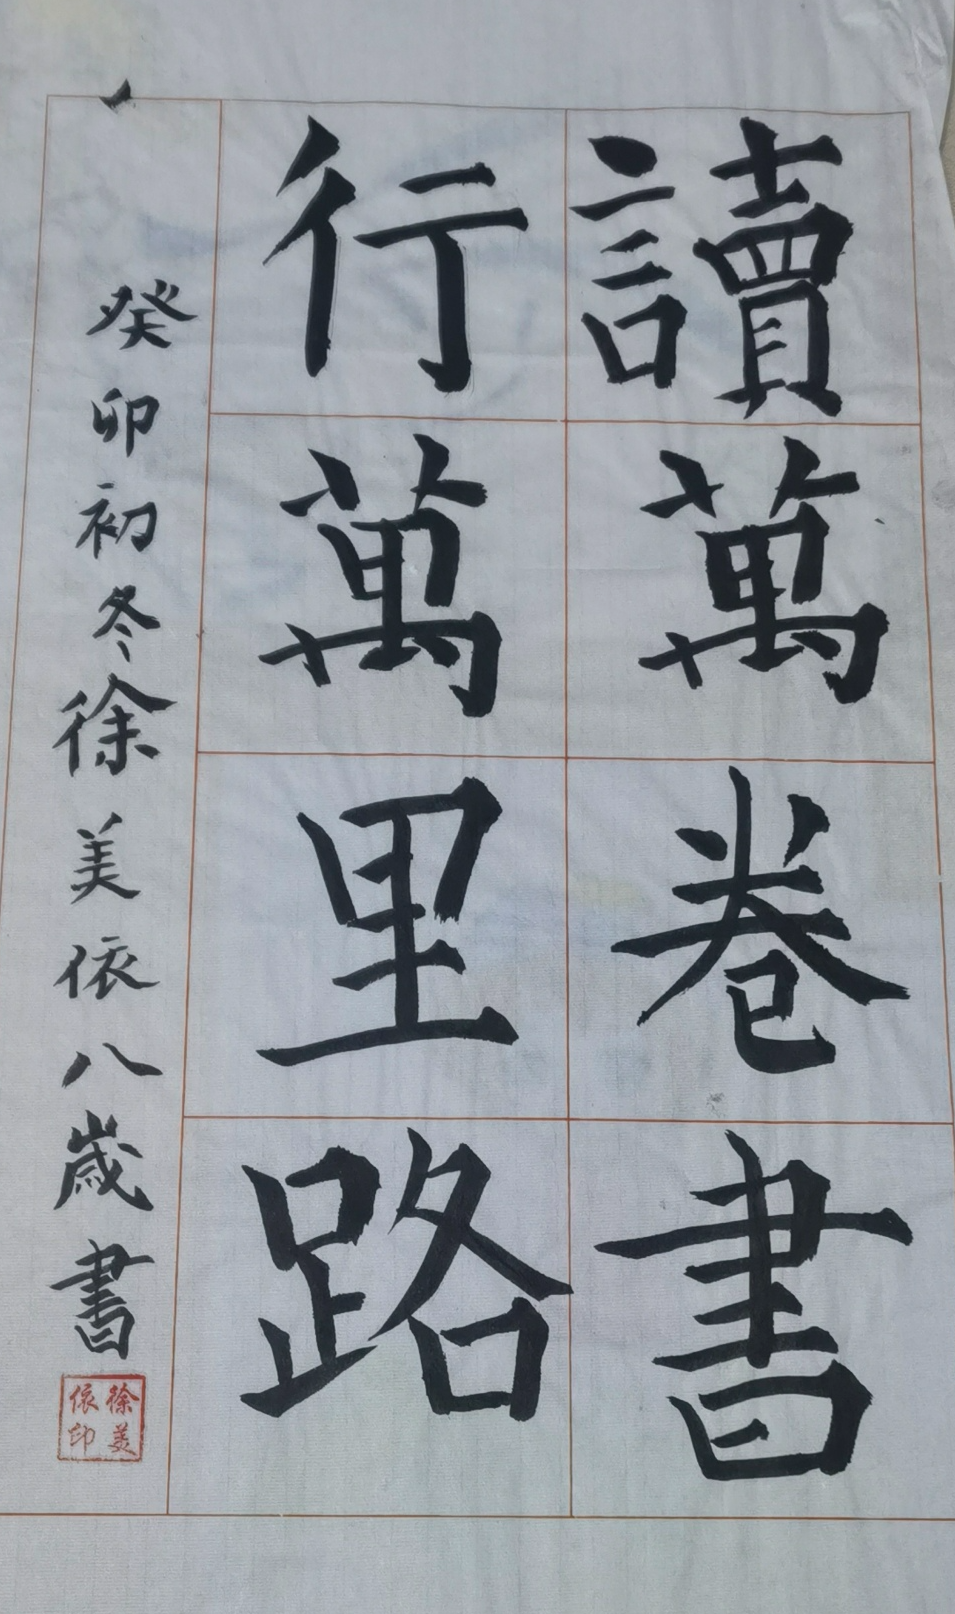 讀萬卷書
行萬里路
癸卯初冬徐美依八歲書
徐美
依印